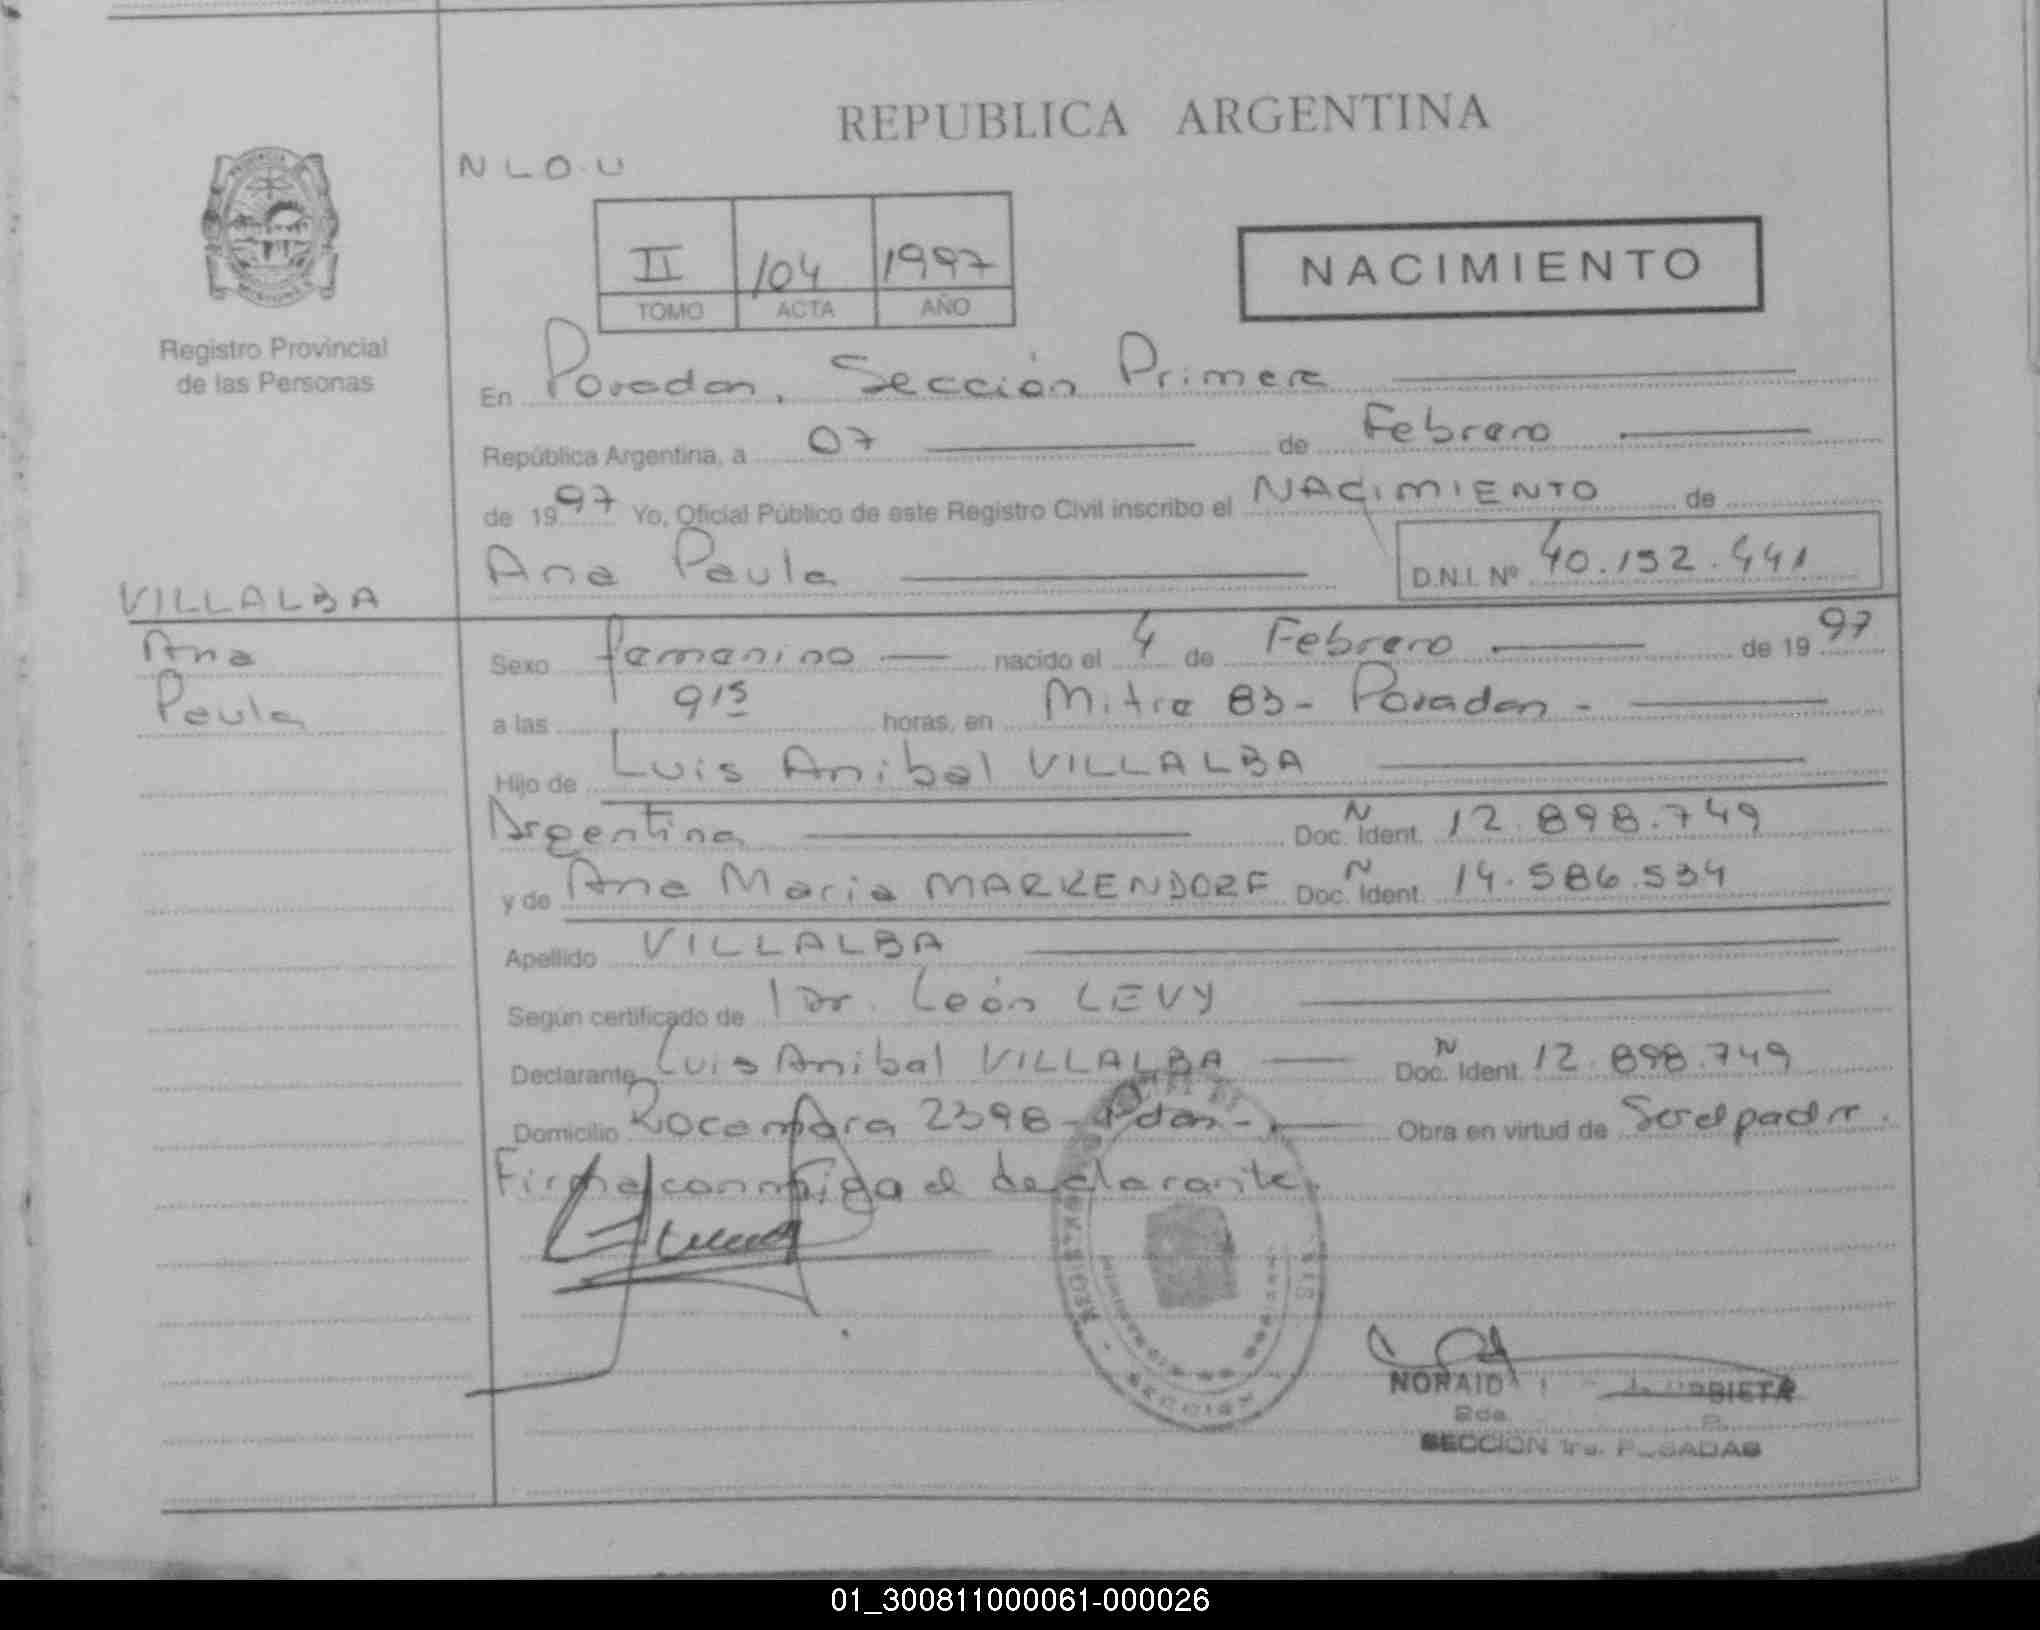 REPUBLICA ARGENTINA
N L O . U
II 104 1997
TOMO ACTA AÑO
NACIMIENTO
Registro Provincial
de las Personas
En Posadas, Sección Primera
República Argentina, a 07 de Febrero
de 1997 Yo, Oficial Público de este Registro Civil inscribo el NACIMIENTO de
Ana Paula D.N.I. Nº 40.152.441
VILLALBA
Ana
Paula
Sexo femenino nacido el 4 de Febrero de 1997
a las 9 15 horas, en Mitre 83 - Posadas -
Hijo de Luis Anibal VILLALBA
Argentina Doc. N Ident. 12.898.749
y de Ana Maria MARKENDORF Doc. N Ident. 14.586.534
Apellido VILLALBA
Según certificado de Dr. León LEVY
Declarante Luis Anibal VILLALBA Doc. N Ident. 12.898.749
Domicilio Rocamora 2398 - Pdas - Obra en virtud de Ser el padre.
Firma conmigo el declarante.
SECCION 1ra. POSADAS
01_300811000061-000026